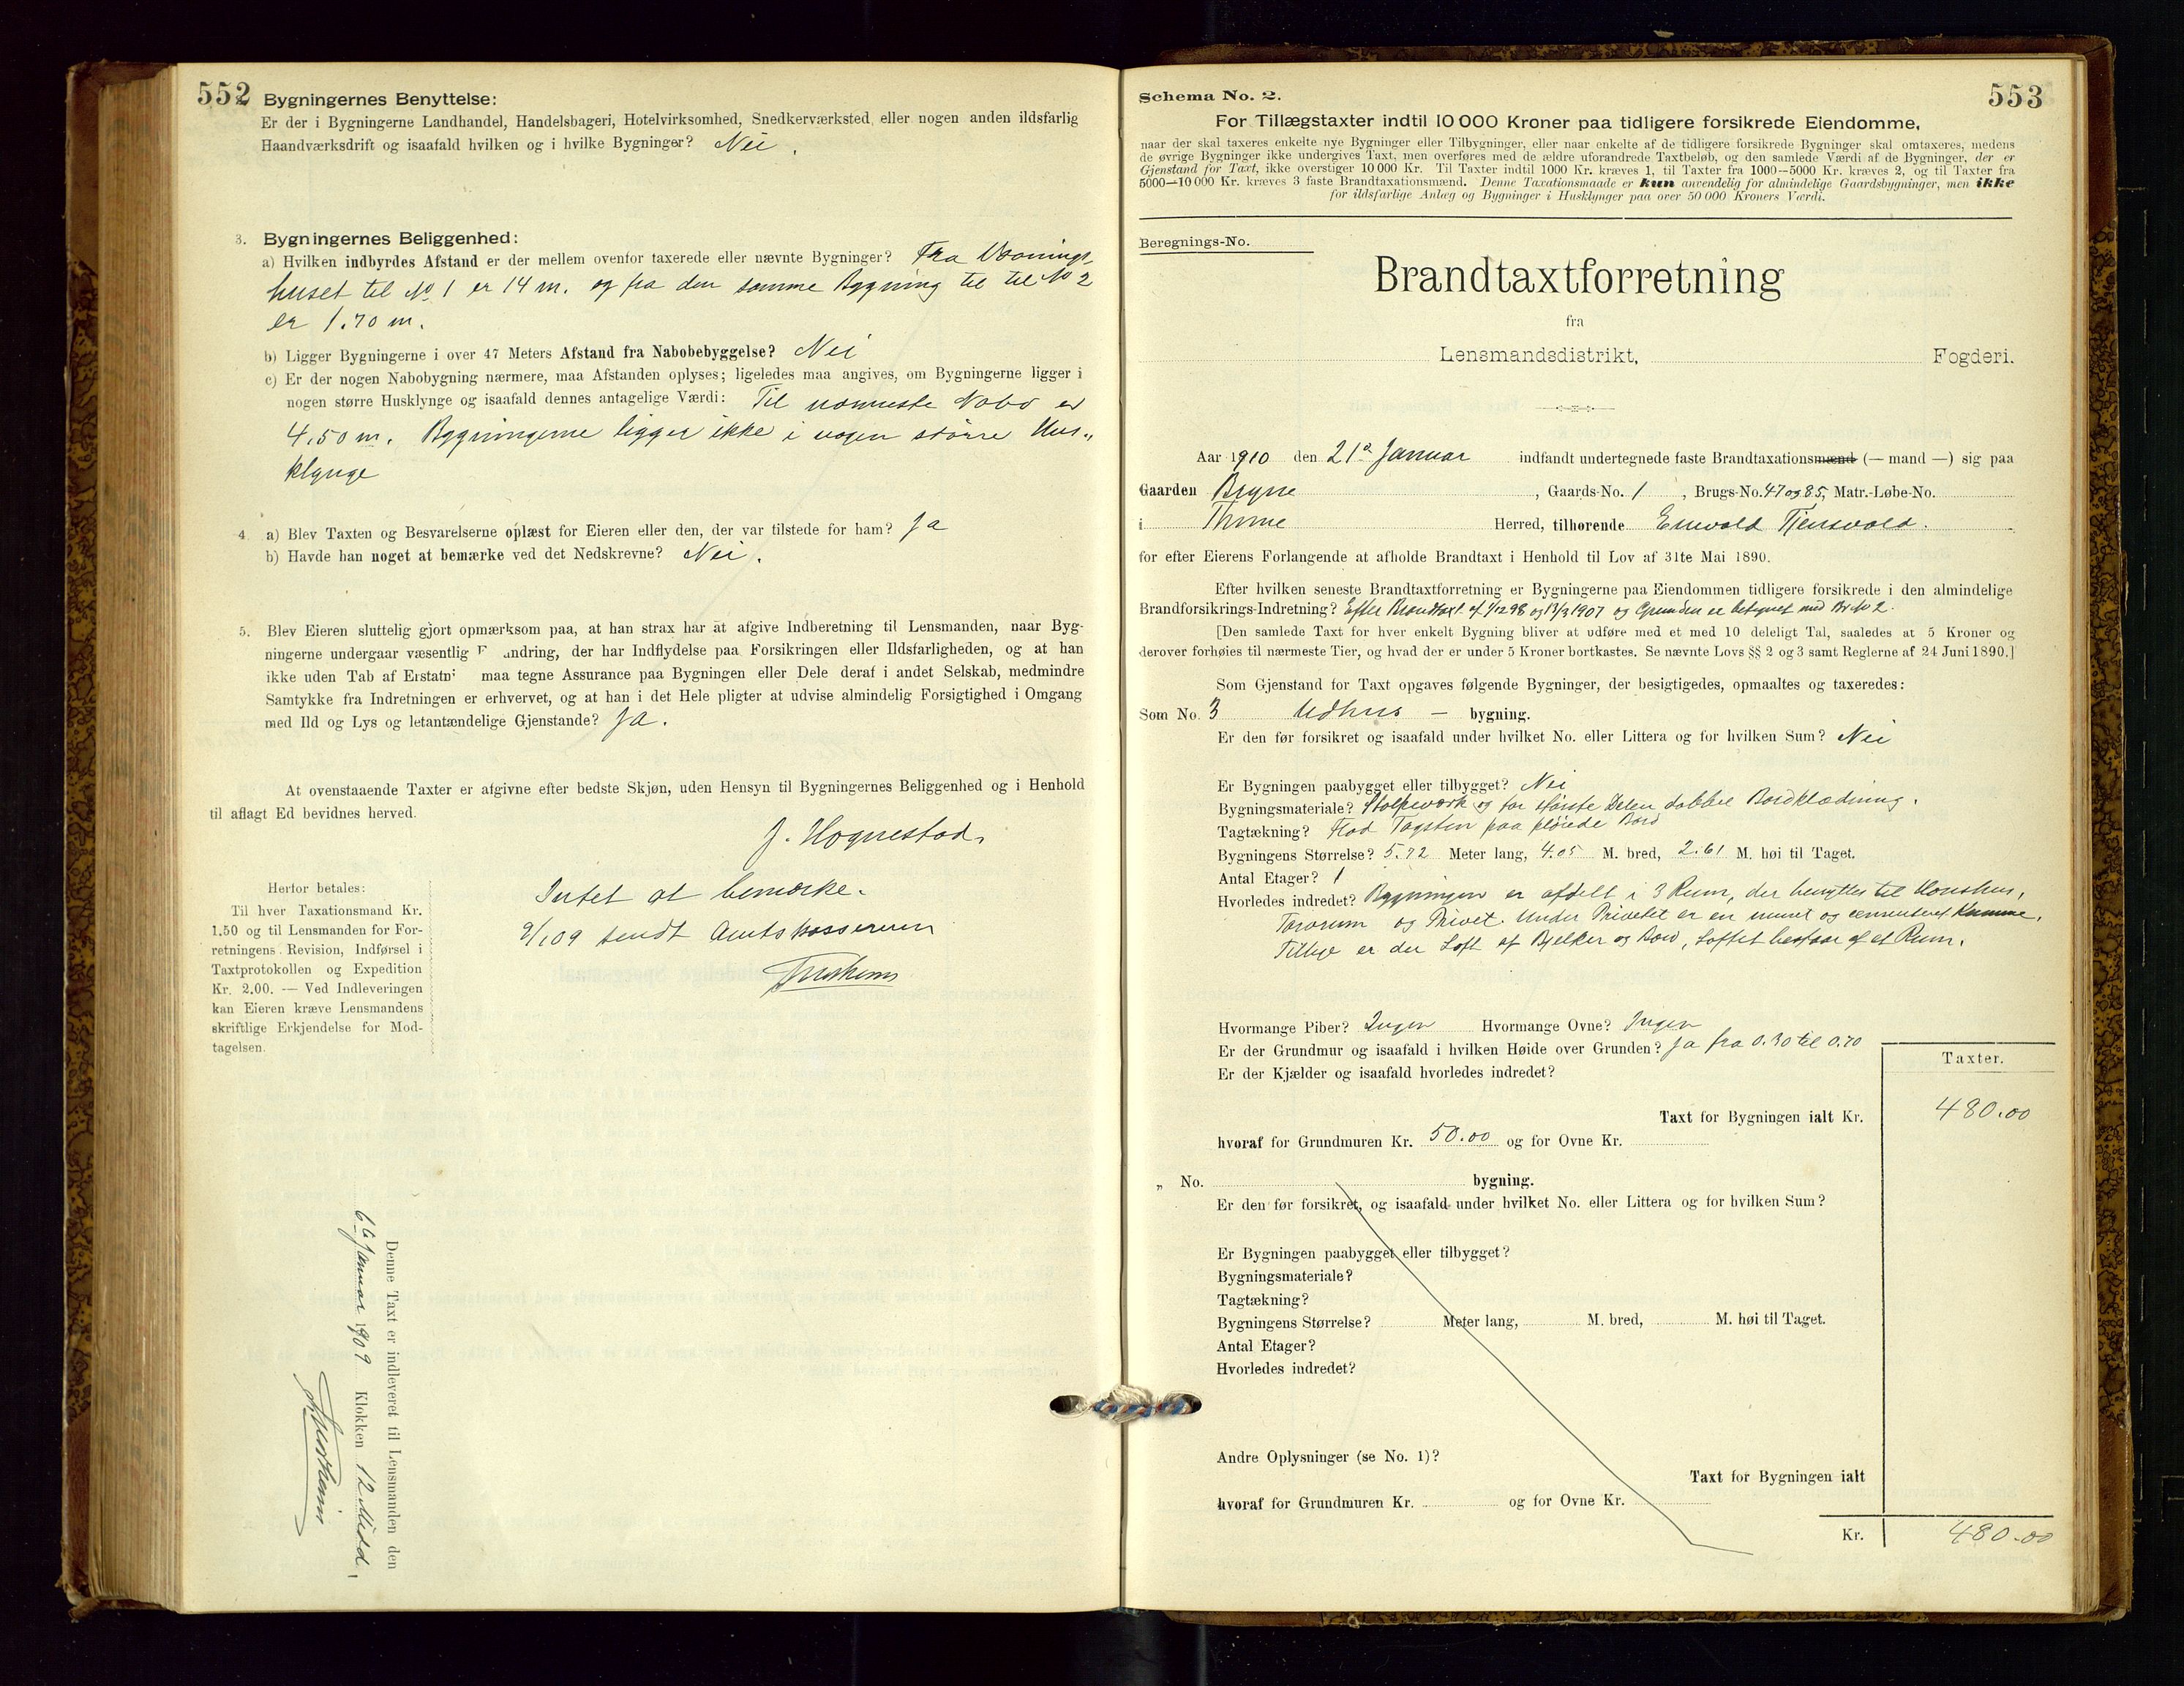 552
Bygningernes Benyttelse:
Er der i Bygningerne Landhandel, Handelsbageri, Hotelvirksomhed, Snedkerværksted eller nogen anden ildsfarlig
Haandværksdrift og isaafald hvilken og i hvilke Bygninger? Nei.
3. Bygningernes Beliggenhed:
a) Hvilken indbyrdes Afstand er der mellem ovenfor taxerede eller nævnte Bygninger? Fra Vaanings-
huset til No 1 er 14 m. og fra den samme Bygning til til No 2
er 1.70 m.
b) Ligger Bygningerne i over 47 Meters Afstand fra Nabobebyggelse? Nei
c) Er der nogen Nabobygning nærmere, maa Afstanden oplyses; ligeledes maa angives, om Bygningerne ligger i
nogen større Husklynge og isaafald dennes antagelige Værdi: Til nærmeste Nabo er
4.50 m. Bygningerne ligger ikke i nogen større Hus-
klynge
4. a) Blev Taxten og Besvarelserne oplæst for Eieren eller den, der var tilstede for ham? Ja
b) Havde han noget at bemærke ved det Nedskrevne? Nei.
5. Blev Eieren sluttelig gjort opmærksom paa, at han strax har at afgive Indberetning til Lensmanden, naar Byg-
ningerne undergaar væsentlig F andring, der har Indflydelse paa Forsikringen eller Ildsfarligheden, og at han
ikke uden Tab af Erstatn maa tegne Assurance paa Bygningen eller Dele deraf i andet Selskab, medmindre
Samtykke fra Indretningen er erhvervet, og at han i det Hele pligter at udvise almindelig Forsigtighed i Omgang
med Ild og Lys og letantændelige Gjenstande? Ja.
At ovenstaaende Taxter er afgivne efter bedste Skjøn, uden Hensyn til Bygningernes Beliggenhed og i Henhold
til aflagt Ed bevidnes herved.
J. Hognestad.
Herfor betales:
Til hver Taxationsmand Kr.
1.50 og til Lensmanden for For-
retningens Revision, Indførsel i
Taxtprotokollen og Expedition
Kr. 2.00. — Ved Indleveringen
kan Eieren kræve Lensmandens
skriftlige Erkjendelse for Mod-
tagelsen.
Intet at bemærke.
9/1 09 sendt Amtskassereren
Denne Taxt er indleveret til Lensmanden den
6te Januar 1909 Klokken 12 Midd.
553
Schema No. 2.
For Tillægstaxter indtil 10 000 Kroner paa tidligere forsikrede Eiendomme,
naar der skal taxeres enkelte nye Bygninger eller Tilbygninger, eller naar enkelte af de tidligere forsikrede Bygninger skal omtaxeres, medens
de øvrige Bygninger ikke undergives Taxt, men overføres med de ældre uforandrede Taxtbeløb, og den samlede Værdi af de Bygninger, der er
Gjenstand for Taxt, ikke overstiger 10 000 Kr. Til Taxter indtil 1000 Kr. kræves 1, til Taxter fra 1000—5000 Kr. kræves 2, og til Taxter fra
5000—10 000 Kr. kræves 3 faste Brandtaxationsmænd. Denne Taxationsmaade er kun anvendelig for almindelige Gaardsbygninger, men ikke
for ildsfarlige Anlæg og Bygninger i Husklynger paa over 50 000 Kroners Værdi.
Beregnings-No.
Brandtaxtforretning
fra
Lensmandsdistrikt, Fogderi.
Aar 1910 den 21de Januar indfandt undertegnede faste Brandtaxationsmænd (— mand —) sig paa
Gaarden Bryne, Gaards-No. 1, Brugs-No. 47 og 85, Matr.-Løbe-No.
i Thime Herred, tilhørende Enevald Tjensvold.
for efter Eierens Forlangende at afholde Brandtaxt i Henhold til Lov af 31te Mai 1890.
Efter hvilken seneste Brandtaxtforretning er Bygningerne paa Eiendommen tidligere forsikrede i den almindelige
Brandforsikrings-Indretning? Efter Brandtaxt af 1/12 98 og 13/3 1907 og Grunden er betegnet med Br. No 2.
[Den samlede Taxt for hver enkelt Bygning bliver at udføre med et med 10 deleligt Tal, saaledes at 5 Kroner og
derover forhøies til nærmeste Tier, og hvad der er under 5 Kroner bortkastes. Se nævnte Lovs §§ 2 og 3 samt Reglerne af 24 Juni 1890.]
Som Gjenstand for Taxt opgaves følgende Bygninger, der besigtigedes, opmaaltes og taxeredes:
Som No. 3 Udhus — bygning.
Er den før forsikret og isaafald under hvilket No. eller Littera og for hvilken Sum? Nei
Er Bygningen paabygget eller tilbygget? Nei
Bygningsmateriale? Stolpeværk og for største Delen dobbel Bordklædning.
Tagtækning? Flad Tagsten paa pløiede Bord
Bygningens Størrelse? 5.72 Meter lang, 4.05 M. bred, 2.61 M. høi til Taget.
Antal Etager? 1
Hvorledes indredet? Bygningen er afdelt i 3 Rum, der benyttes til Hønshus,
Torvrum og Privet. Under Privetet er en muret og cementeret Kumme.
Tillige er der Loft af Bjelker og Bord, Loftet bestaar af et Rum.
Hvormange Piber? Ingen Hvormange Ovne? Ingen
Er der Grundmur og isaafald i hvilken Høide over Grunden? Ja fra 0.30 til 0.70
Er der Kjælder og isaafald hvorledes indredet?
Taxter.
Taxt for Bygningen ialt Kr. 480.00
hvoraf for Grundmuren Kr. 50.00 og for Ovne Kr.
„ No. bygning.
Er den før forsikret, og isaafald under hvilket No. eller Littera og for hvilken Sum?
Er Bygningen paabygget eller tilbygget?
Bygningsmateriale?
Tagtækning?
Bygningens Størrelse? Meter lang, M. bred, M. høi til Taget.
Antal Etager?
Hvorledes indredet?
Andre Oplysninger (se No. 1)?
Taxt for Bygningen ialt
hvoraf for Grundmuren Kr. og for Ovne Kr.
Kr. 480.00